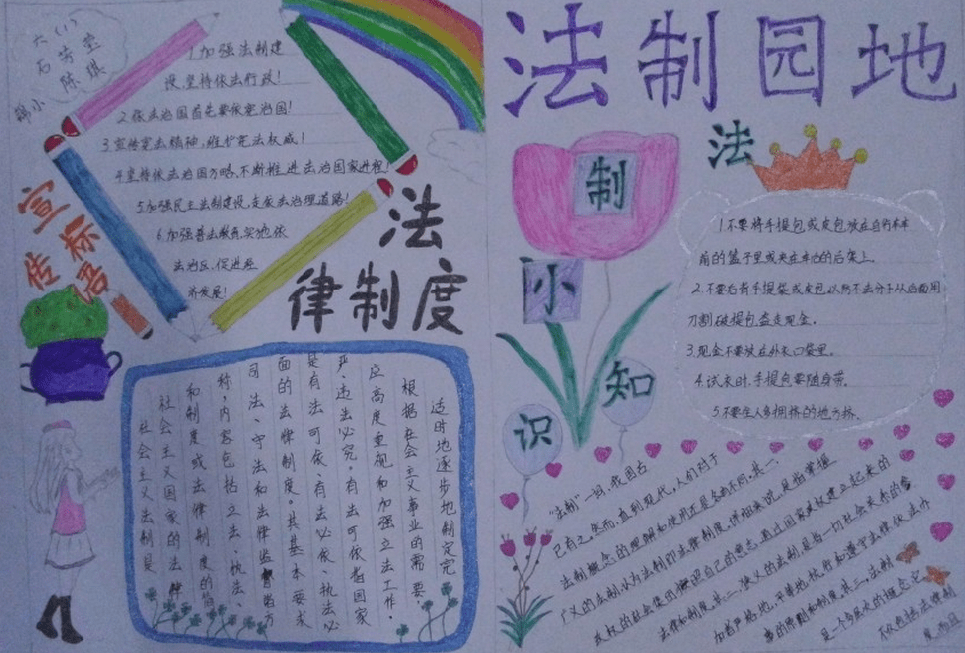 六(1)
石芳莹
陈琪
锦小
1.加强法制建
设,坚持依法行政!
2.依法治国首先要依宪治国!
3.宣传宪法精神,维护宪法权威!
4.坚持依法治国方略,不断推进法治国家进程!
5.加强民主法制建设,走依法治理道路!
6.加强普法教育,实施依
法治区,促进经
济发展!
宣传标语
法
律制度
适时地逐步地制定完
根据在社会主义事业的需要,
应高度重视和加强立法工作,
严,违法必究。有法可依者国家
是有法可依,有法必依,执法必
面的法律制度。其基本要求
司法、守法和法律监督各方
称,内容包括立法、执法、
和制度或法律制度的
社会主义国家的法律
社会主义法制是
法制园地
法
制
小
知
识
1.不要将手提包或皮包放在自行车车
前的篮子里或夹在车的后架上。
2.不要右背手提袋或皮包以防不法分子从后面用
刀割破提包盗走现金。
3.现金不要放在外衣口袋里。
4.试衣时,手提包要随身带。
5.不要坐人多拥挤的地方挤。
“法制”一词,我国古
已有之。然而,直到现代,人们对于
法制概念的理解和使用还是各有不同。其一、
广义的法制,认为法制即法律制度。详细来说,是指掌握
政权的社会集团按照自己的意志、通过国家政权建立起来的
法律和制度。其二、狭义的法制,是指一切社会关系的参
加者严格地、平等地执行和遵守法律,依法办
事的原则和制度。其三、法制
是一个多层次的概念,它
不仅包括法律制
度,而且